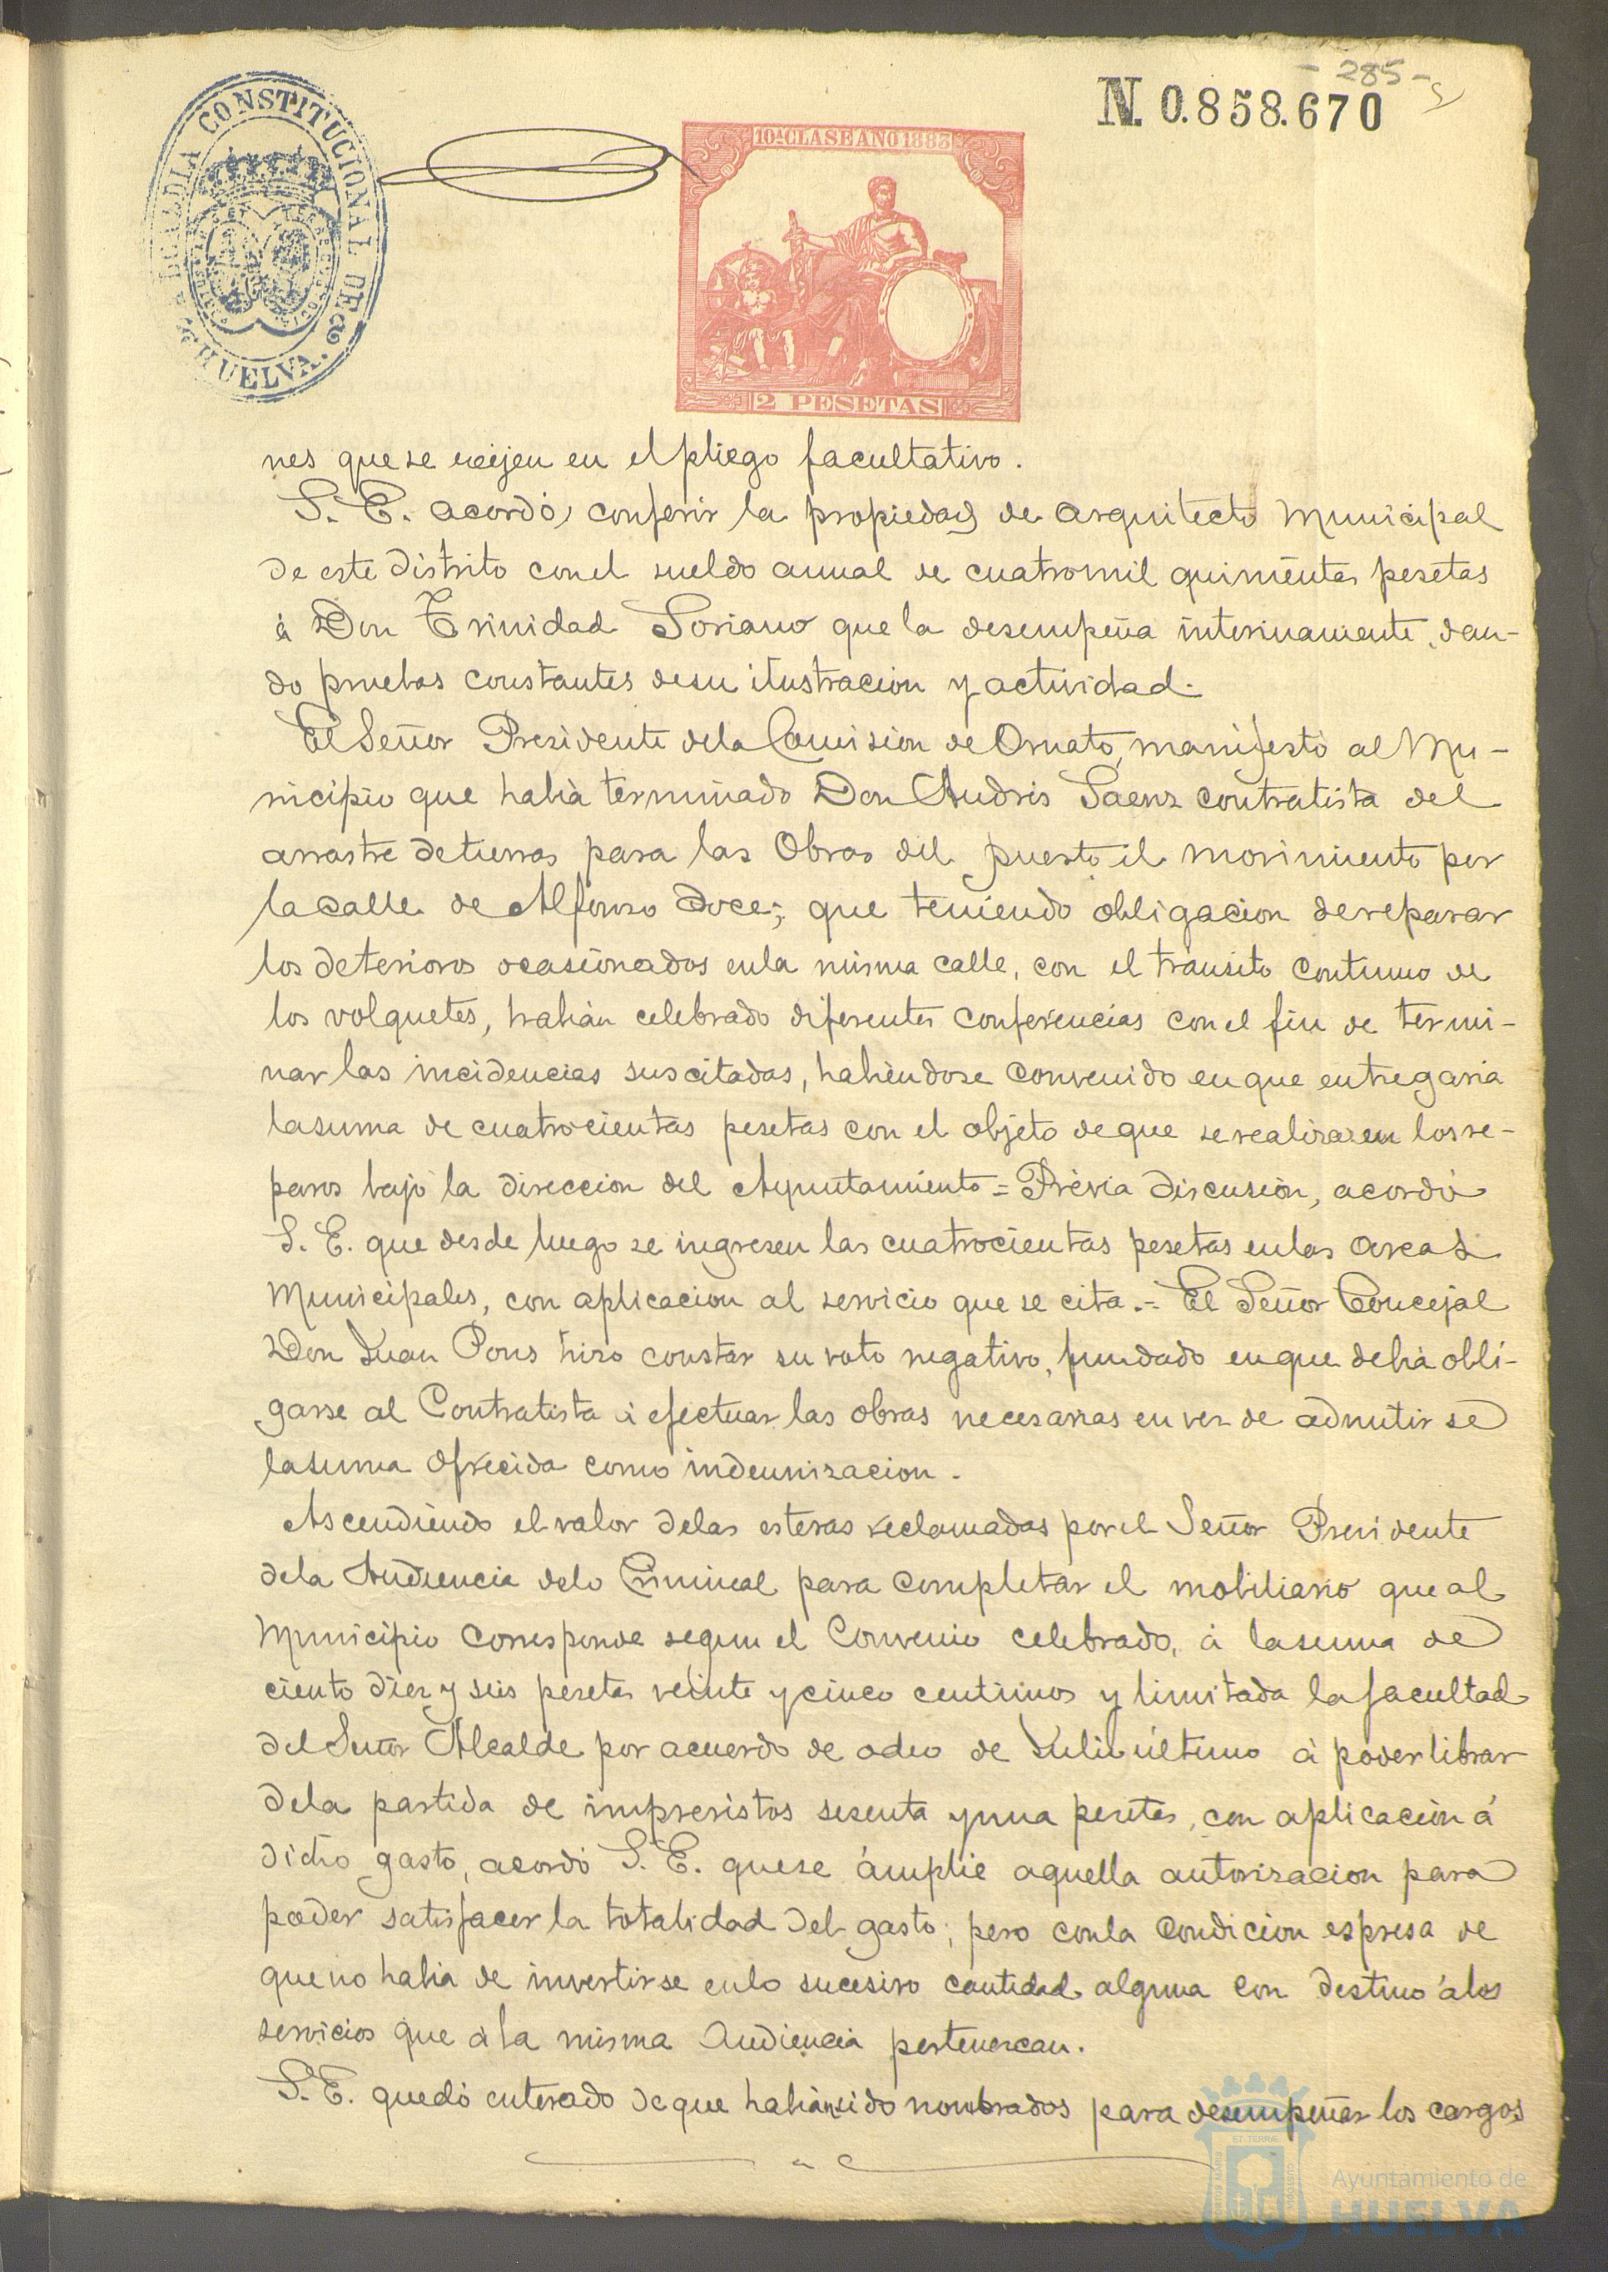 - 285 -
N. 0.858.670
ALCALDIA CONSTITUCIONAL DE
HUELVA.
10ª CLASE AÑO 1883
2 PESETAS
nes que se exijen en el pliego facultativo.
S. E. acordó, conferir la propiedad de Arquitecto Municipal
de este distrito con el sueldo anual de cuatro mil quinientas pesetas
á Don Trinidad Soriano que la desempeña interinamente, dan-
do pruebas constantes de su ilustracion y actividad.
El Señor Presidente de la Comision de Ornato, manifestó al Mu-
nicipio que habia terminado Don Andrés Saenz contratista del
arrastre de tierras para las Obras del puerto el movimiento por
la calle de Alfonso Doce; que teniendo obligacion de reparar
los deterioros ocasionados en la misma calle, con el transito continuo de
los volquetes, habian celebrado diferentes conferencias con el fin de termi-
nar las incidencias suscitadas, habiendose convenido en que entregaria
la suma de cuatrocientas pesetas con el objeto de que se realizasen los re-
paros bajo la direccion del Ayuntamiento = Prévia discusion, acordó
S. E. que desde luego se ingresen las cuatrocientas pesetas en las arcas
Municipales, con aplicacion al servicio que se cita. = El Señor Concejal
Don Juan Pons hizo constar su voto negativo, fundado en que debia obli-
garse al Contratista á efectuar las obras necesarias en vez de admitirse
la suma ofrecida como indemnizacion.
Ascendiendo el valor de las esteras reclamadas por el Señor Presidente
de la Audiencia de lo Criminal para completar el mobiliario que al
Municipio corresponde segun el Convenio celebrado, á la suma de
ciento diez y seis pesetas veinte y cinco centimos y limitada la facultad
del Señor Alcalde por acuerdo de ocho de Julio último á poder librar
de la partida de imprevistos sesenta y una pesetas, con aplicacion á
dicho gasto, acordó S. E. que se amplie aquella autorizacion para
poder satisfacer la totalidad del gasto; pero con la condicion espresa de
que no habia de invertirse en lo sucesivo cantidad alguna con destino á los
servicios que á la misma Audiencia pertenezcan.
S. E. quedó enterado de que habian sido nombrados para desempeñar los cargos
Ayuntamiento de
HUELVA